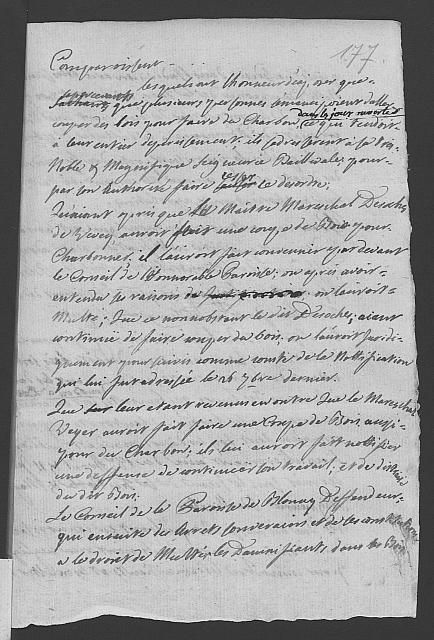 177
Comparoissent
lesquels ont l'honneur d'exposer que
que plusieurs personnes émancipoient d'aller
couper des bois pour faire du Charbon, dans les jours ce qui tendoit
à leur entier déperissement, ils s'adressent à sa très
Noble & Magnifique Seigneurie Baillivale, pour
par son Authorité faire cesser ce desordre;
Qu'aiant apris que le Maitre Mareschal Desoche
de Vevey auroit fait une coupe de Bois pour
Charbonner, il l'auroit fait convenir par devant
le Conseil de l'Honnorable Paroisse; ou après avoir
entendu ses raisons on l'auroit
Multé; Que ce nonobstant le dit Desoche, aiant
continué de faire couper du bois, on l'auroit
gagement pour suivi comme conste de la Nottification
qui lui fut adressée le 26 7bre dernier.
Que leur etant revenu en outre que le Mareschal
Veyer auroit fait faire une Coupe de Bois aussi
pour du Charbon; ils lui auroit fait nottifier
une deffense de continuer son travail, et de
du dit Bois;
Le Conseil de la Paroisse de Blonay Deffendeur
qui ensuite des Arrets Souverains et de ses
a le droit de Multer les Damnifiants dans les Bois